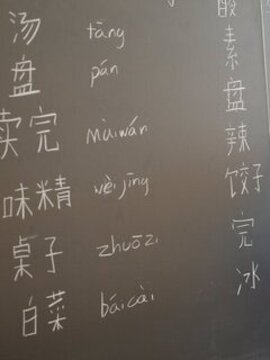 汤 tāng
盘 pán
卖完 màiwán
味精 wèijīng
桌子 zhuōzi
白菜 báicài
酸
素
盘
辣
饺子
完
冰